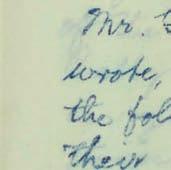 Mr.
wrote,
the fol
their